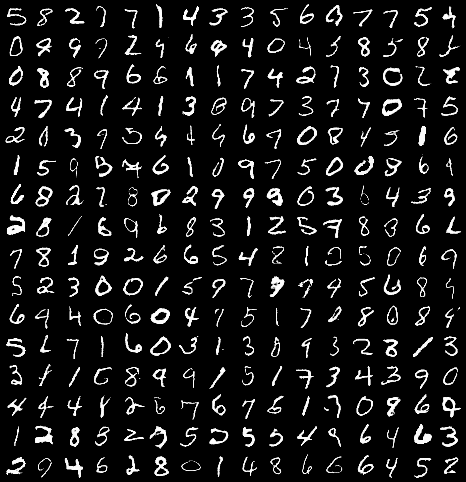 5 8 2 7 7 1 4 3 3 5 6 0 7 7 5 4
0 9 9 7 2 9 6 4 4 0 4 5 8 5 8 5
0 8 8 9 6 6 1 1 7 4 2 7 3 0 2 8
4 7 4 1 4 1 3 8 9 7 3 7 7 0 7 5
2 0 3 9 5 4 4 4 6 9 0 8 4 5 1 6
1 5 9 3 4 6 1 0 9 7 5 0 0 8 6 9
6 8 2 7 8 0 2 9 9 9 0 3 6 4 3 9
2 8 1 6 9 6 8 3 1 2 5 7 8 3 6 2
7 8 1 9 2 6 6 5 4 2 1 0 5 0 6 9
5 2 3 0 0 1 5 9 7 9 9 4 5 6 8 9
6 9 4 0 6 0 4 7 5 1 7 0 8 0 8 9
5 2 7 1 6 0 3 1 3 8 9 3 2 8 1 3
3 1 1 5 8 9 9 1 5 1 7 3 4 3 9 0
4 4 4 8 2 6 7 6 7 6 1 7 0 8 6 7
1 2 8 3 2 5 5 5 5 5 4 9 6 4 6 3
2 9 4 6 2 8 0 1 4 8 6 6 6 4 5 2